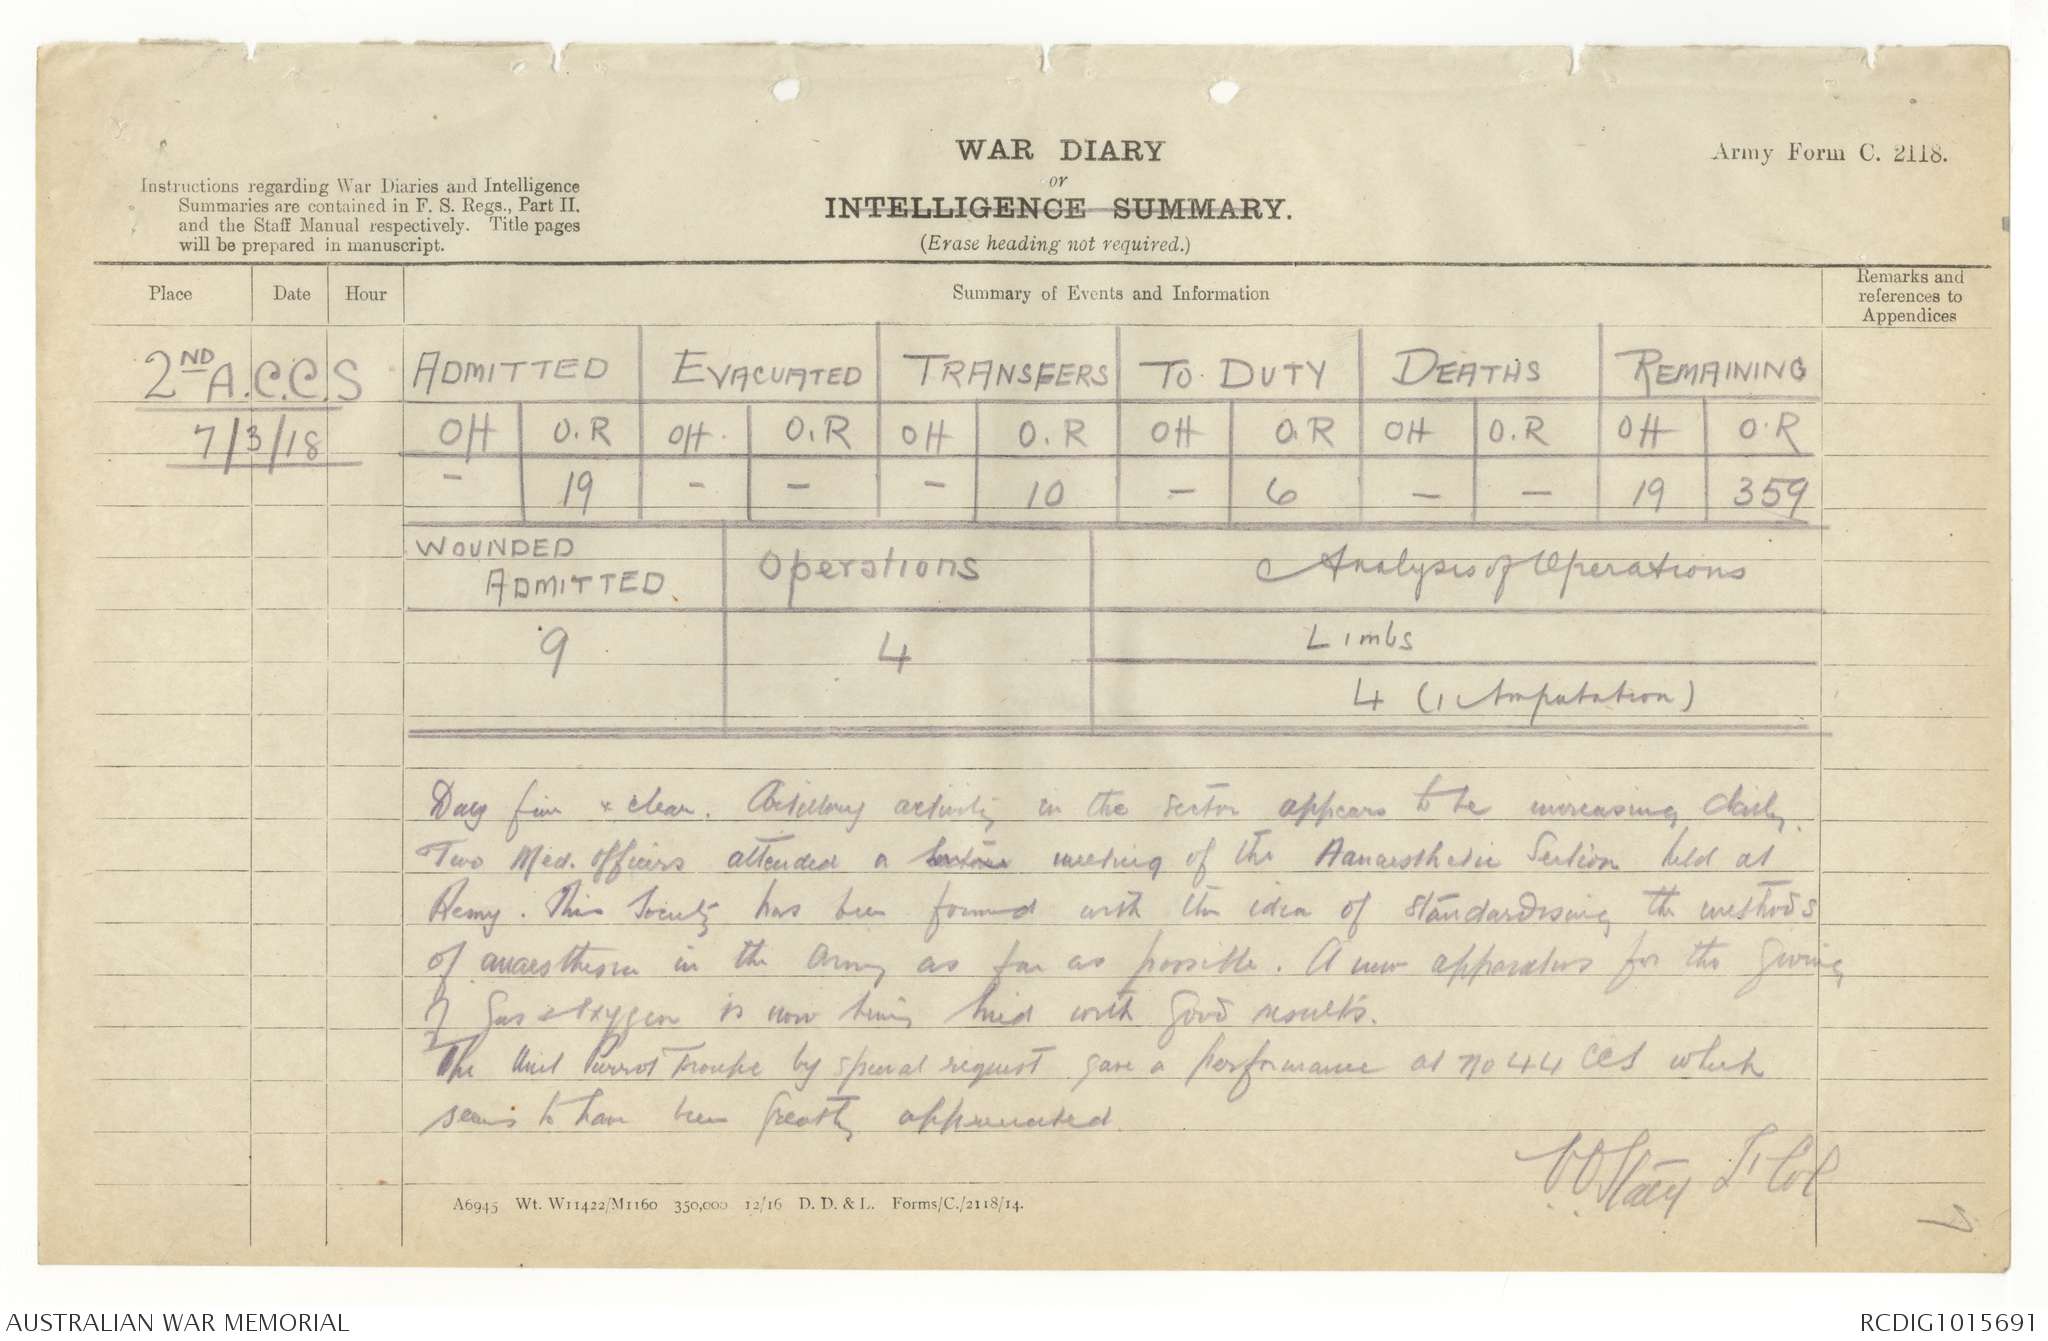 WAR DIARY
or
INTELLIGENCE SUMMARY.
(Erase heading not required.)
Army Form C. 2118.
Instructions regarding War Diaries and Intelligence
Summaries are contained in F. S. Regs., Part II.
and the Staff Manual respectively. Title pages
will be prepared in manuscript.
Place Date Hour Summary of Events and Information Remarks and references to Appendices
2ND A.C.C.S
7/3/18
ADMITTED EVACUATED TRANSFERS TO DUTY DEATHS REMAINING
OH O.R OH. O.R OH O.R OH O.R OH O.R OH O.R
- 19 - - - 10 - 6 - - 19 359
WOUNDED ADMITTED Operations Analysis of Operations
9 4 Limbs
4 (1 Amputation)
Day fine & clear. Artillery activity in the sector appears to be increasing daily.
Two Med. Officers attended a meeting of the Aanaesthetic Section held at
Remy. This Society has been formed with the idea of standardising the methods
of anaesthesia in the Army as far as possible. A new apparatus for the giving
of gas & oxygen is now being tried with good results.
The Unit Pierrot Troupe by special request gave a performance at No 44 CCS which
seems to have been greatly appreciated
Stacy Lt Col
A6945 Wt. W11422/M1160 350,000 12/16 D. D. & L. Forms/C./2118/14.
AUSTRALIAN WAR MEMORIAL
RCDIG1015691